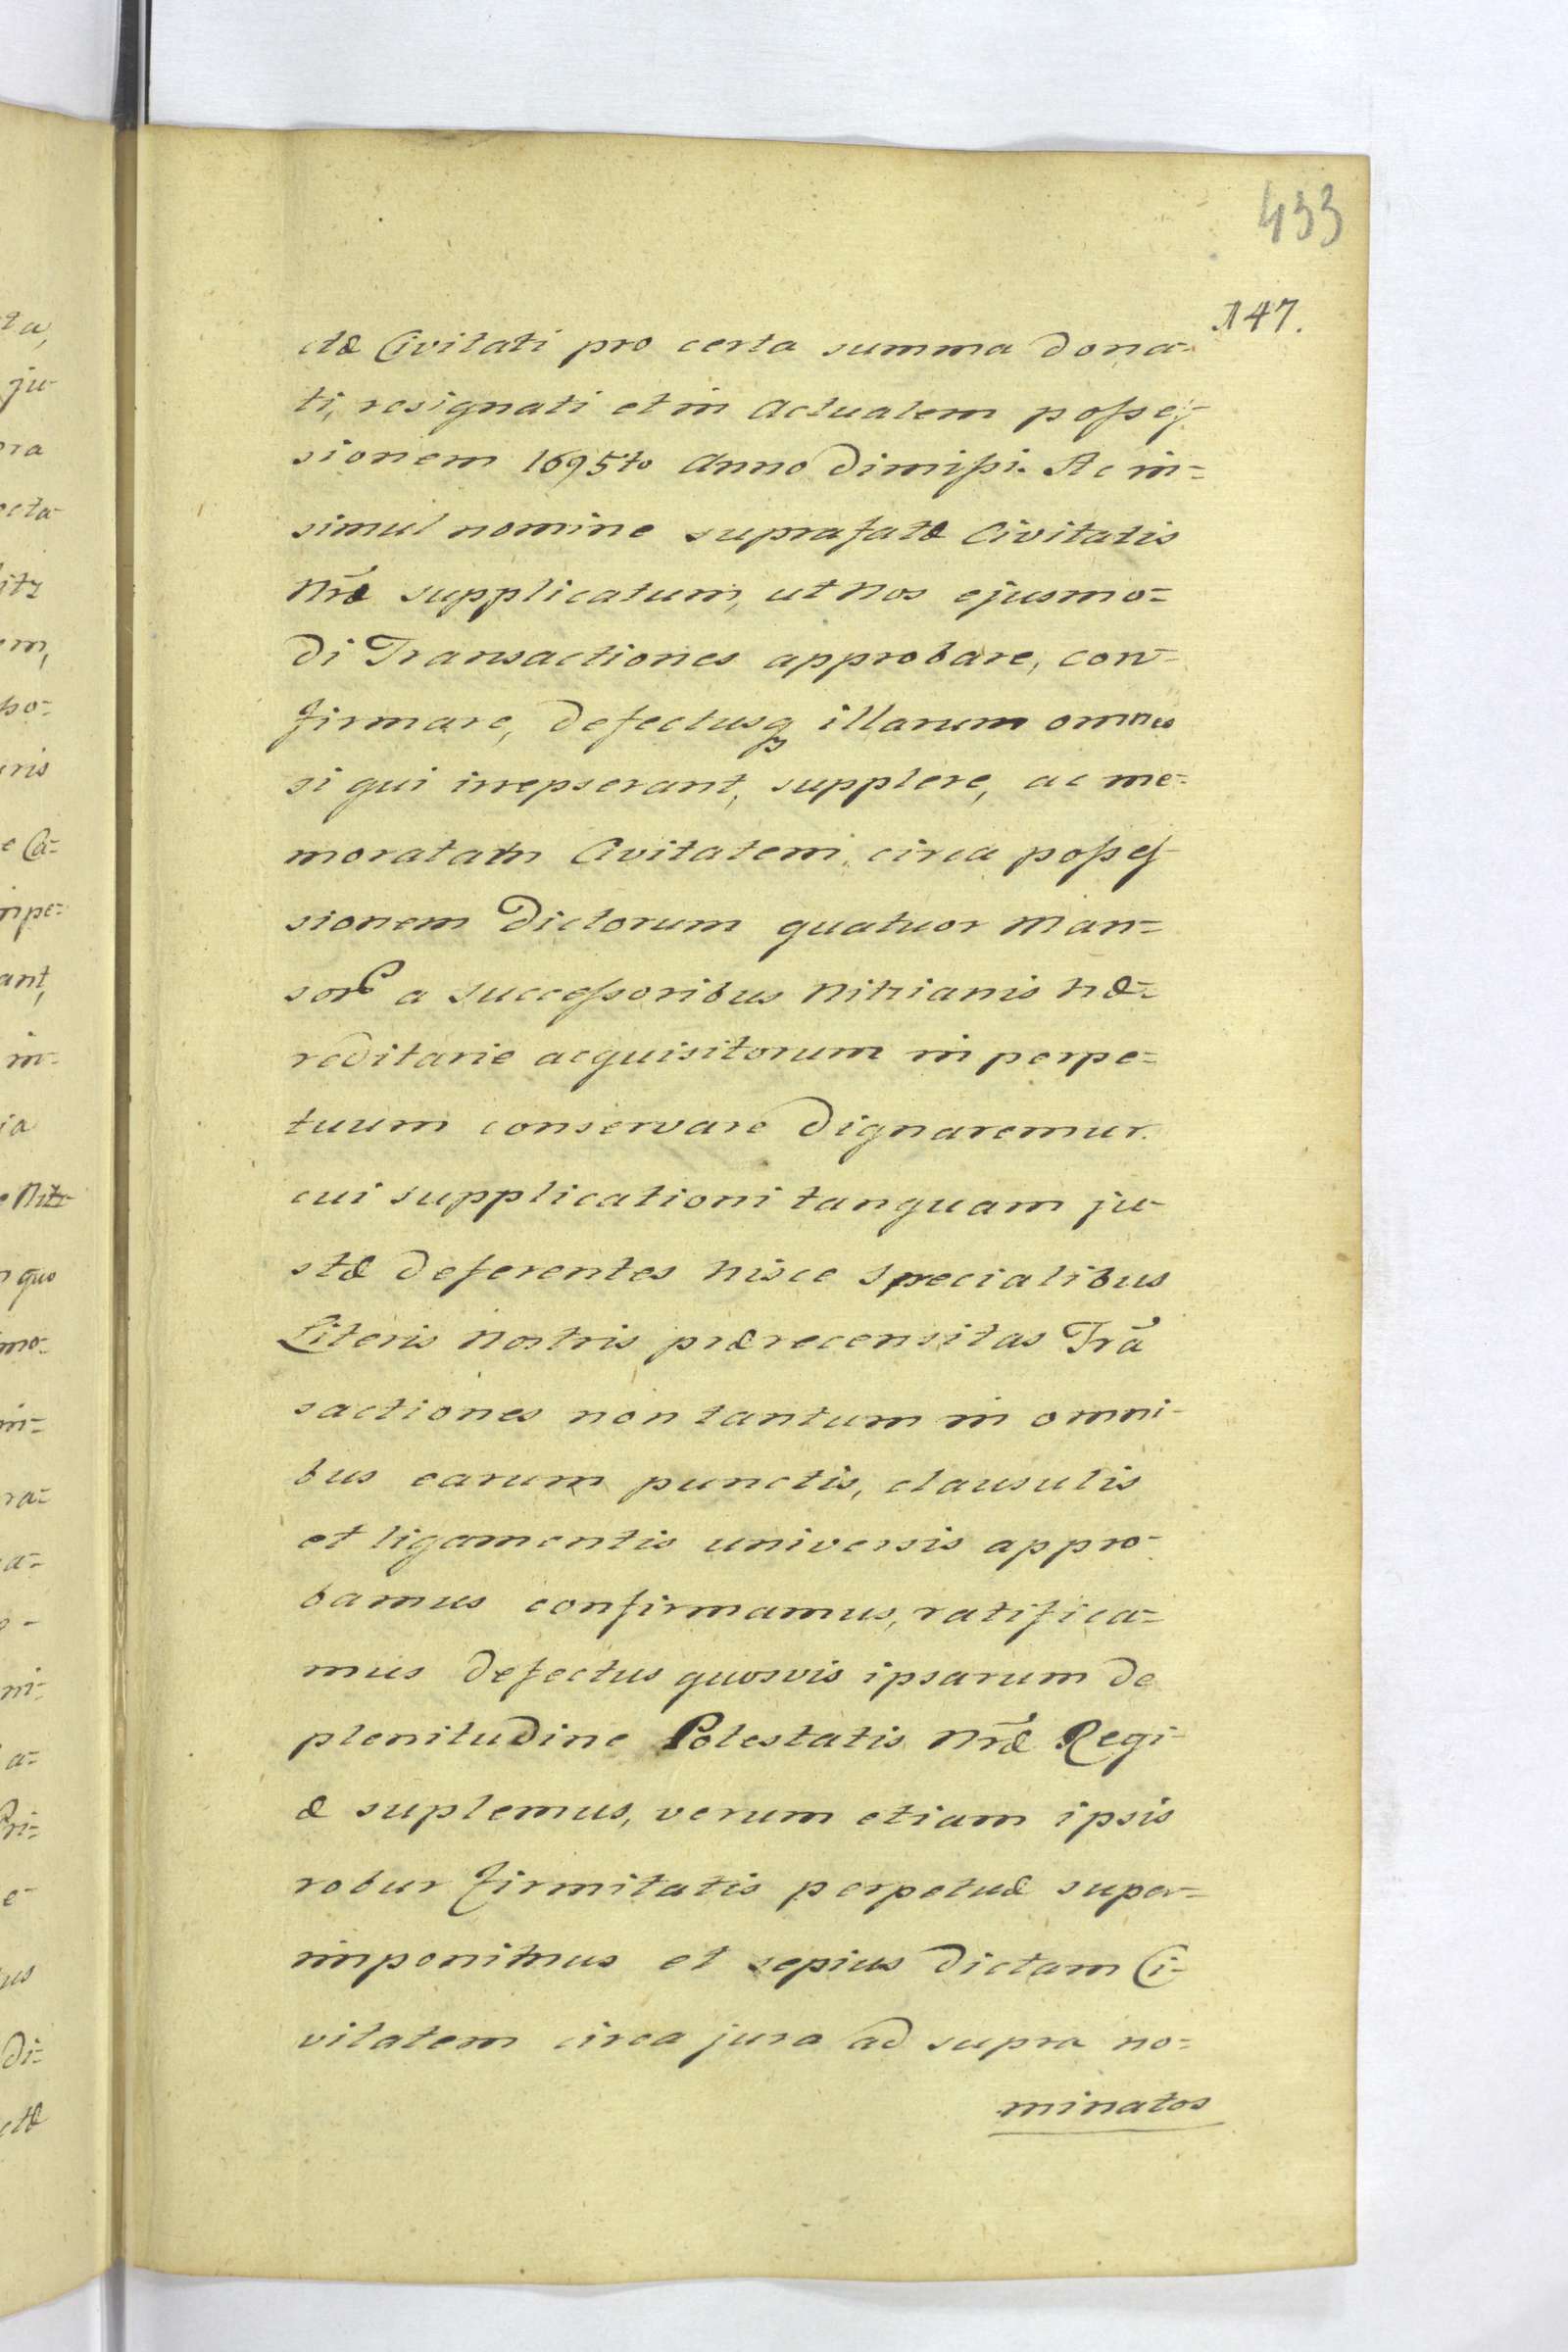 433
147.
ctæ Civitati pro certa summa dona-
ti, resignati et in actualem posses-
sionem 1695to Anno dimissi. Ac in=
simul nomine suprafatæ Civitatis
nr̃æ supplicatum, ut Nos ejusmo=
di Transactiones approbare, con-
firmare, defectusq illarum omnes
si qui irrepserant, supplere, ac me-
moratam Civitatem, circa posses-
sionem dictorum quatuor Man=
sor a successoribus Nitrianis hæ=
reditarie acquisitorum in perpe=
tuum conservare dignaremur.
cui supplicationi tanquam ju-
stæ deferentes hisce specialibus
Literis Nostris prærecensitas Trã
sactiones non tantum in omni-
bus earum punctis, clausulis
et ligamentis universis appro-
bamus confirmamus, ratifica=
mus defectus quosvis ipsarum de
plenitudine Potestatis Nr̃æ Regi-
æ suplemus, verum etiam ipsis
robur firmitatis perpetuæ super=
imponimus et sepius dictam Ci-
vitatem circa jura ad supra no=
minatos
ta,
ju-
ora
octa-
itz
em,
po=
uris
e Ca=
mpe=
ant,
in-
ia
e Nitr-
quo
mo-
in=
ra=
a=
ni=
a=
Pri=
e-
us
di=
ctæ